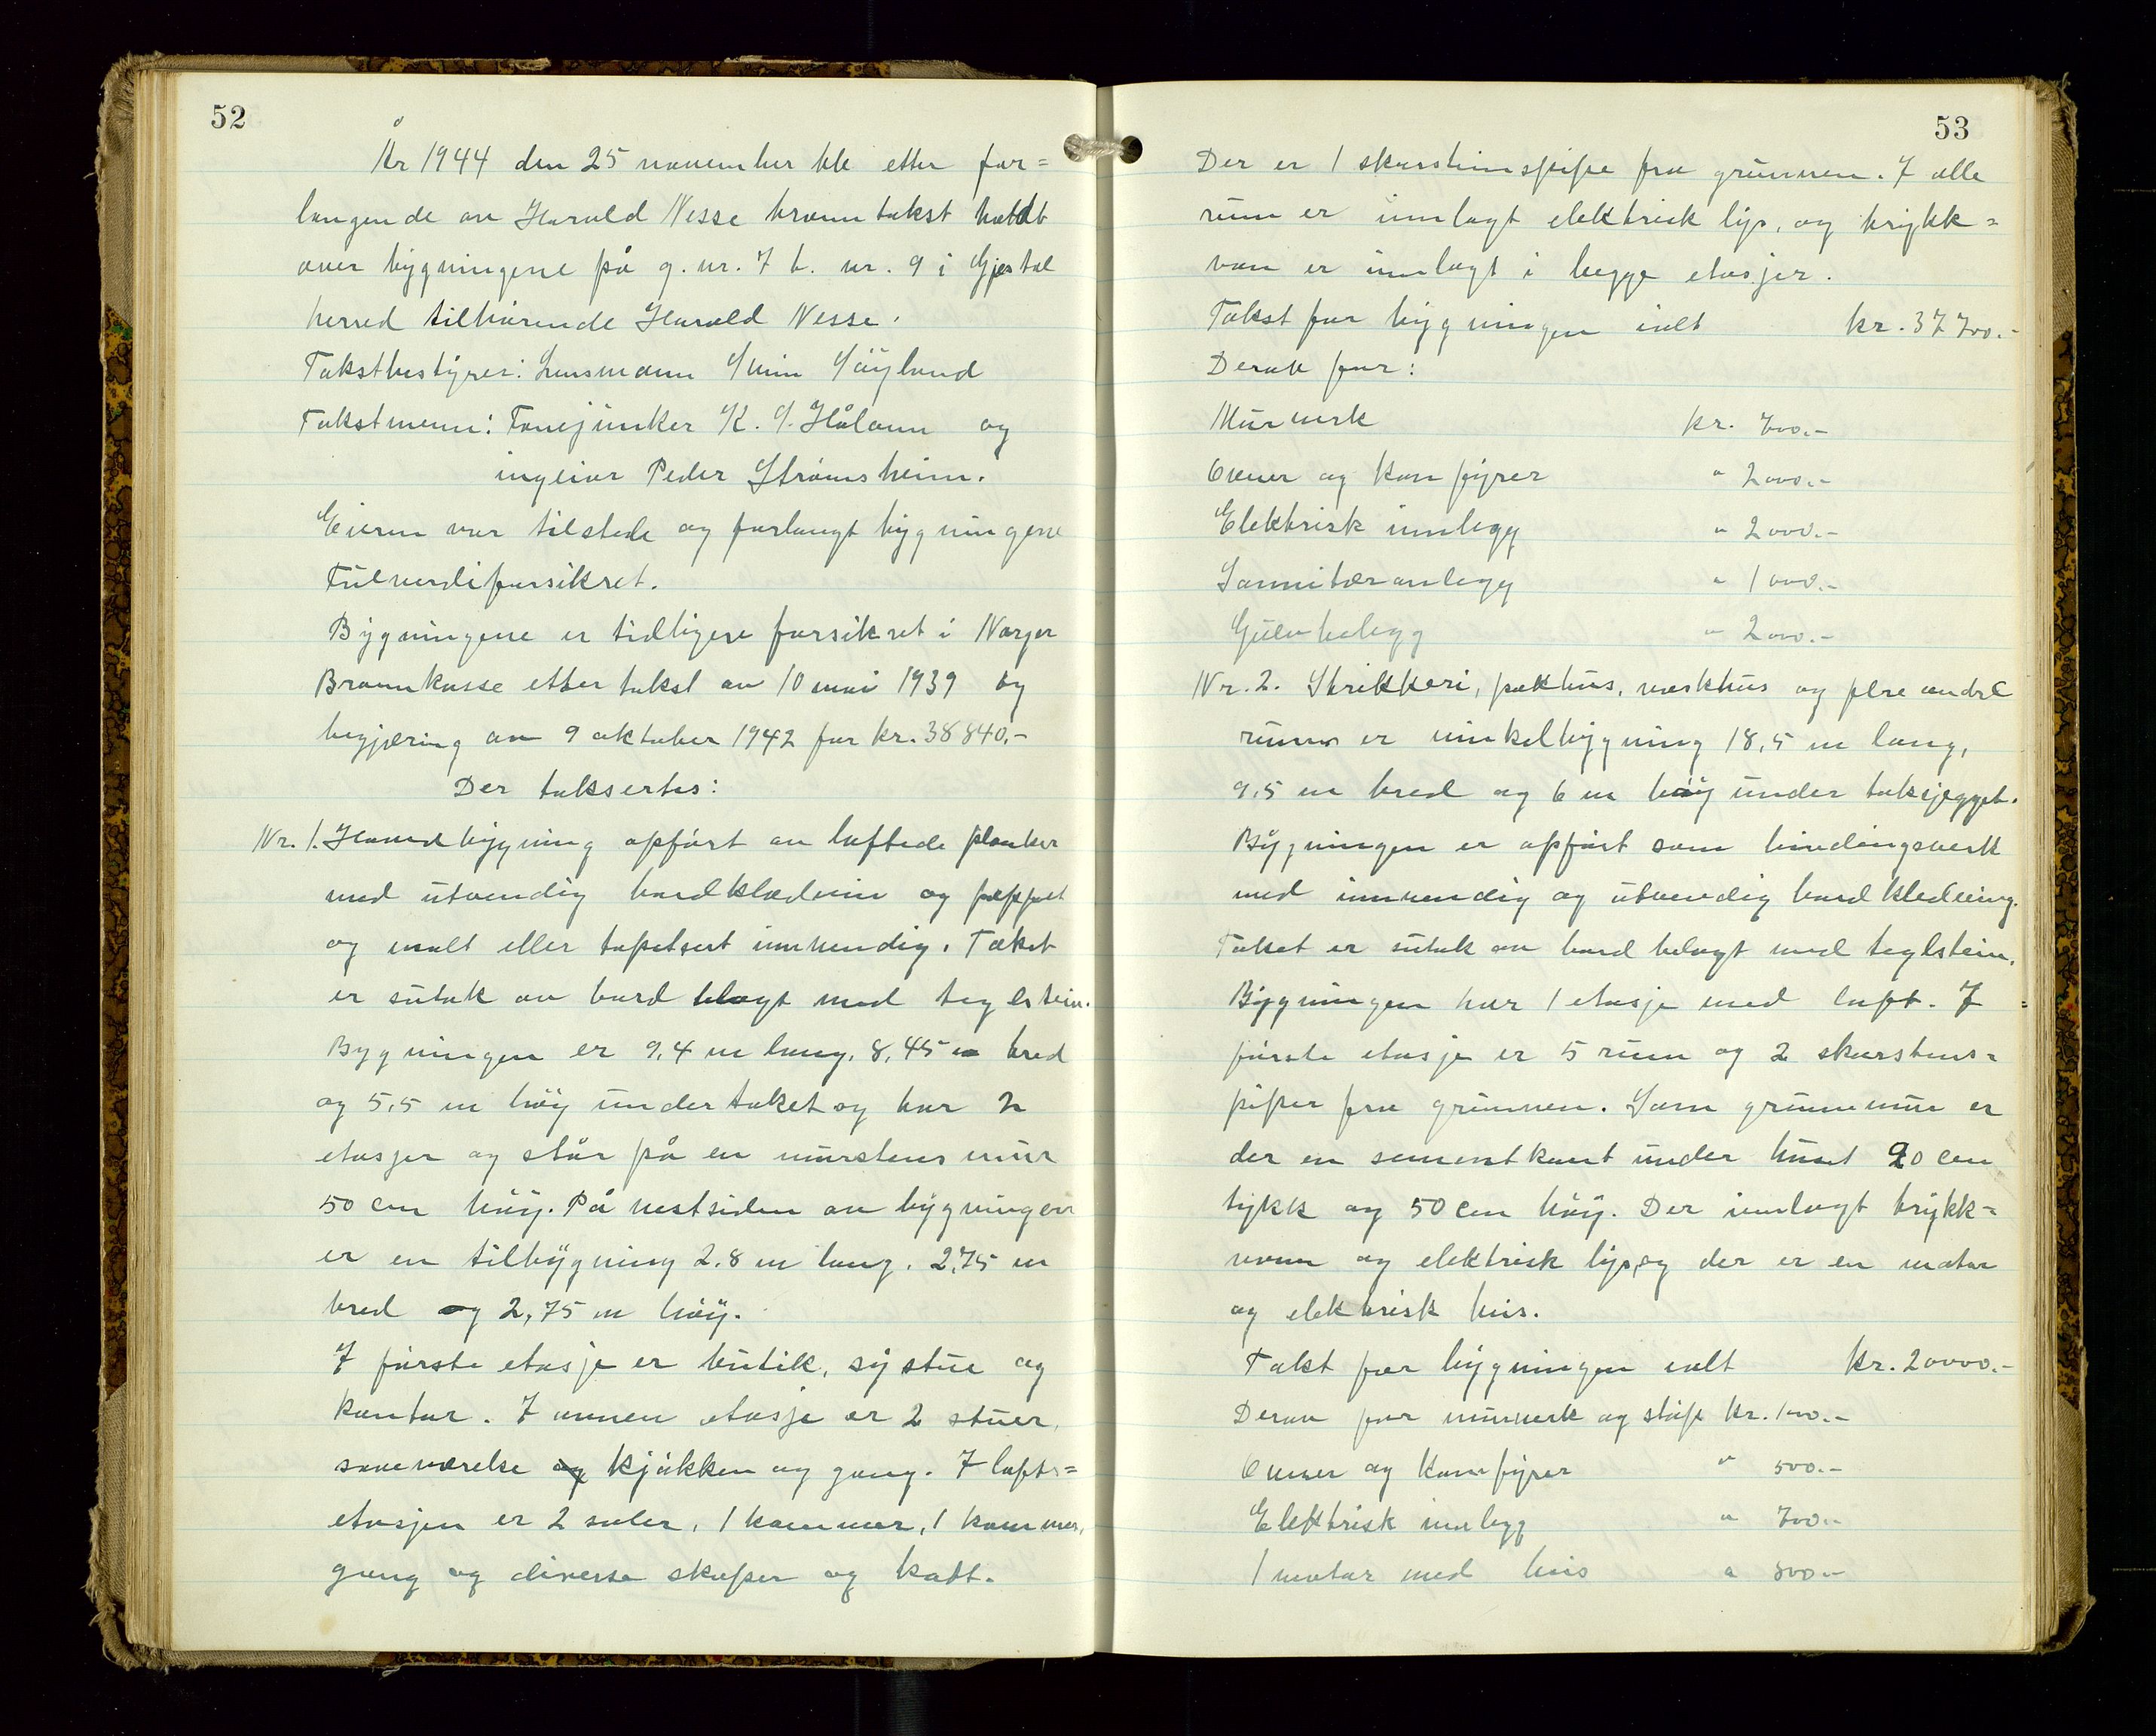 52
År 1944 den 25 november ble etter for=
langende av Harald Nesse branntakst holdt
over bygningene på g. nr. 7 b. nr. 9 i Gjestal
herred tilhørende Harald Nesse.
Takstbestyrer: Lensmann Søyland
Takstmenn: Fanejunker K. S. Håland og
ingeiør Peder Strømsheim.
Eieren var tilstede og forlangt bygningene
Fulverdiforsikret.
Bygningene er tidligere forsikret i Norges
Brannkasse etter takst av 10 mai 1939 og
begjæring av 9 oktober 1942 for kr. 38840,-
Der taksertes:
Nr. 1. Hovedbygning opført av laftede planker
med utvendig bordklædnin og pappet
og malt eller tapetsert innvendig. Taket
er sutak av bord belagt med teglstein.
Bygningen er 9,4 m lang, 8,45 m bred
og 5,5 m høy under taket og har 2
etasjer og står på en murstens mur
50 cm høy. På vestsiden av bygningen
er en tilbygning 2.8 m lang, 2,75 m
bred og 2,75 m høy.
I første etasje er butik, systue og
kontor. I annen etasje er 2 stuer,
soveværelse og kjøkken og gang. I lofts=
etasjen er 2 saler, 1 kammer, 1 kammer,
gang og diverse skaper og kott.
53
Der er 1 skorstinspipe fra grunnen. I alle
rum er innlagt elektrisk lys, og trykk=
van er innlagt i begge etasjer.
Takst for bygningen ialt kr. 37700.-
Derav for:
Murverk kr. 700.-
Ovner og komfyrer " 2000.-
Elektrisk innlegg " 2000.-
Sannitæranlegg " 1000.-
Gulvbelegg " 2000.-
Nr. 2. Strikkeri, pakhus, vaskhus og flere andre
rum er vinkelbygning 18,5 m lang,
9,5 m bred og 6 m høy under takskjegget.
Bygningen er opført som bindingsverk
med innvendig og utvendig bordkledning.
Taket er sutak av bord belagt med teglstein.
Bygningen har 1 etasje med loft. I =
første etasje er 5 rum og 2 skorstens=
piper fra grunnen. Som grunnmur er
der en sementkant under huset 20 cm
tykk og 50 cm høy. Der innlagt trykk=
vann og elektrisk lys, og der er en motor
og elektrisk heis.
Takt for bygningen ialt kr. 20000.-
Derav for murverk og støp kr. 100.-
Ovner og komfyrer " 500.-
Elektrisk innlegg " 700.-
1 motor med heis " 500.-